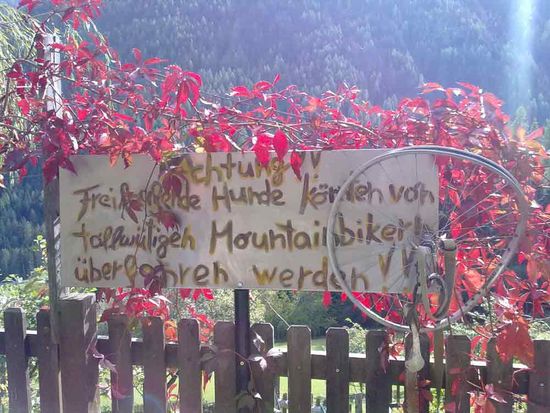 Achtung!!
Freilaufende Hunde können von
tollwütigen Mountainbikern
überfahren werden!!